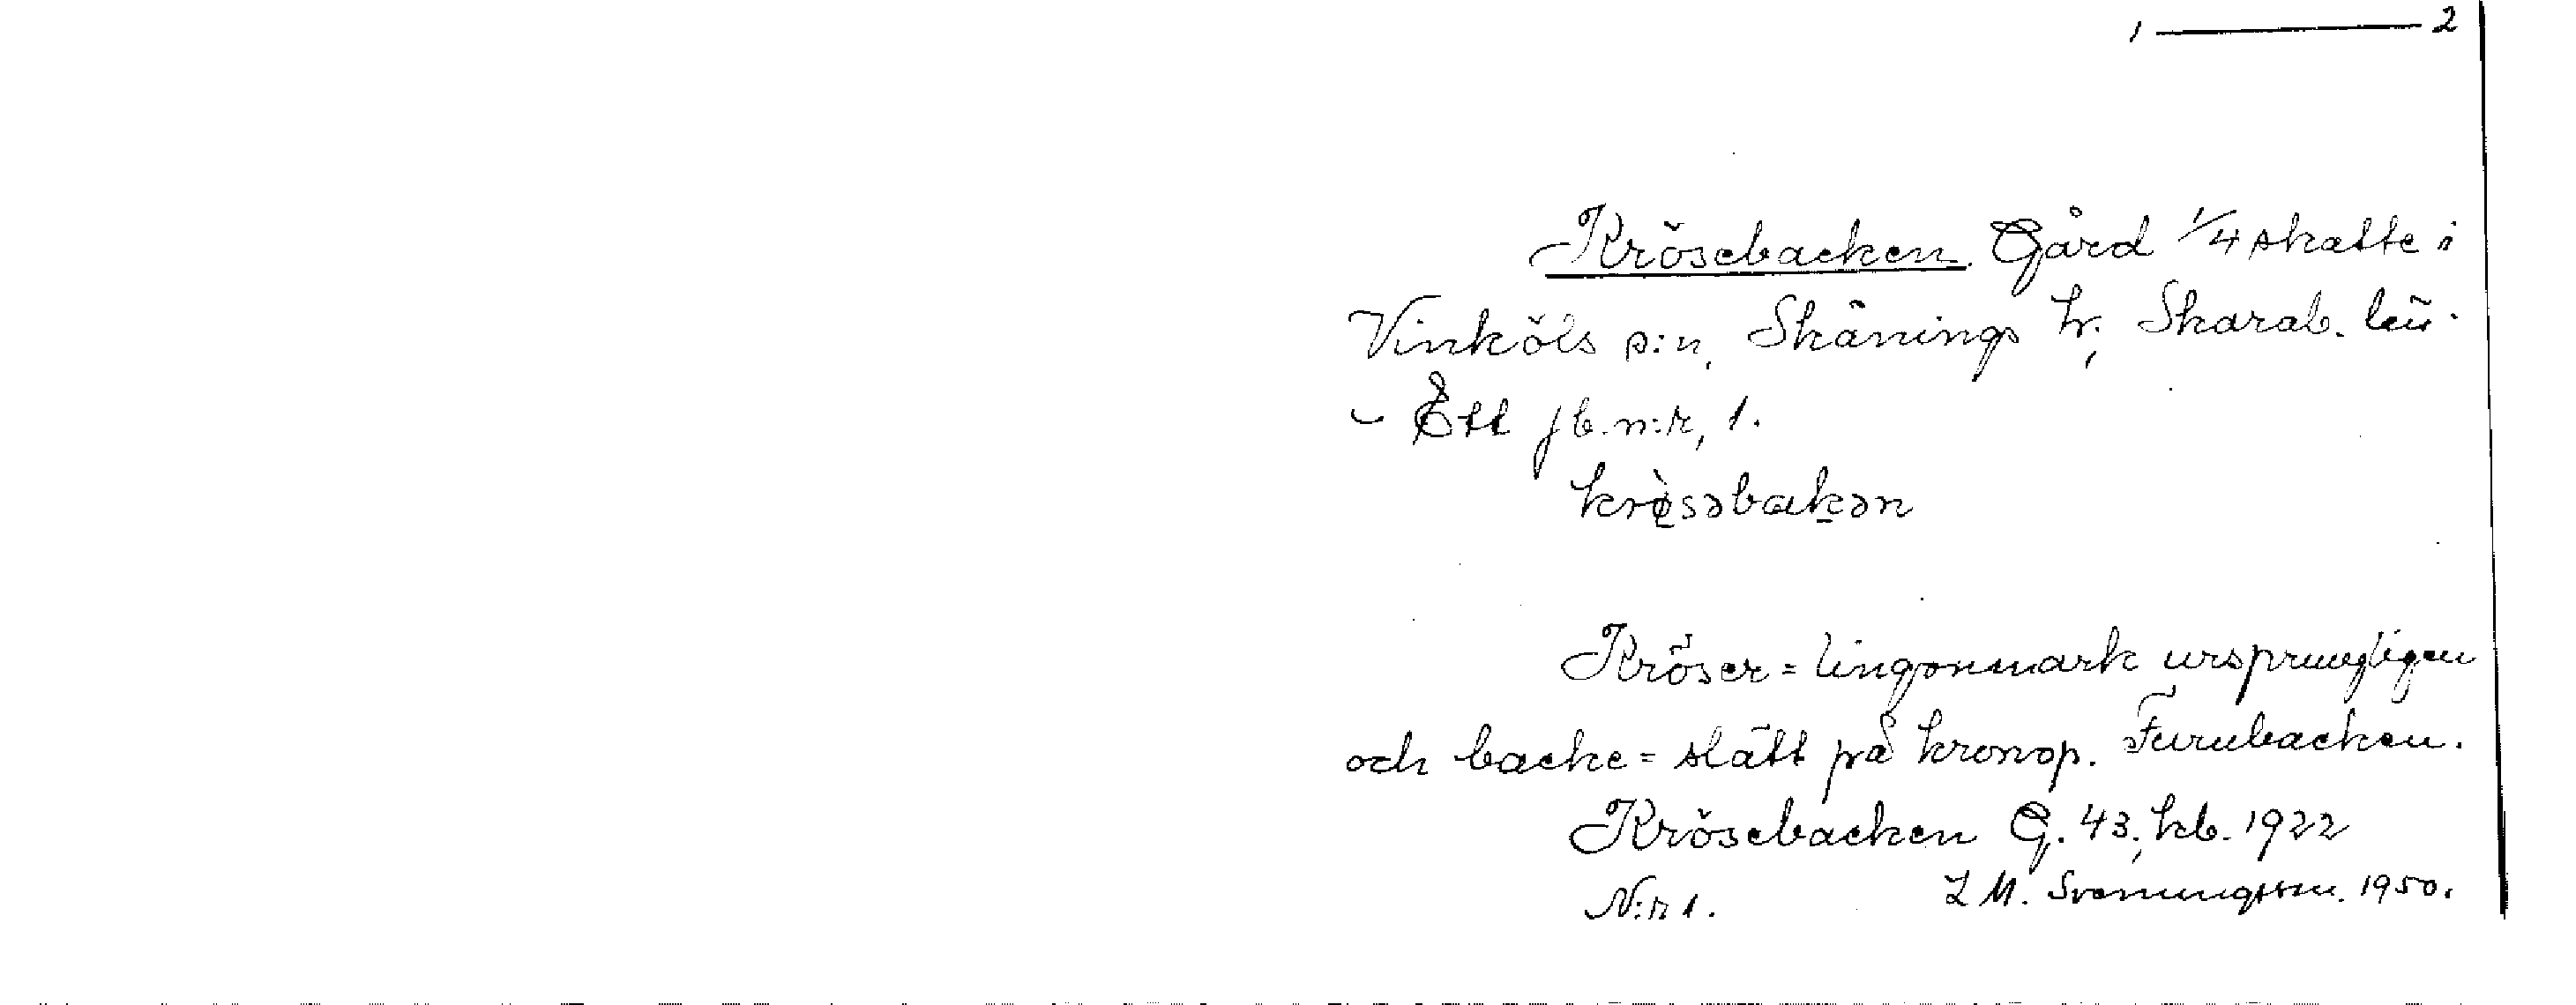 1 — 2
Krösebacken. Gård 1/4 skatte i
Vinköls s:n, Skånings hr, Skarab. län.
– Ett jb. n:r, 1.
krø̀səbakən
Kröser = lingonmark ursprungligen
och backe = slätt på kronop. Furubacken.
Krösebacken G. 43, kb. 1922
N:r 1. L M. Svenungsson. 1950.